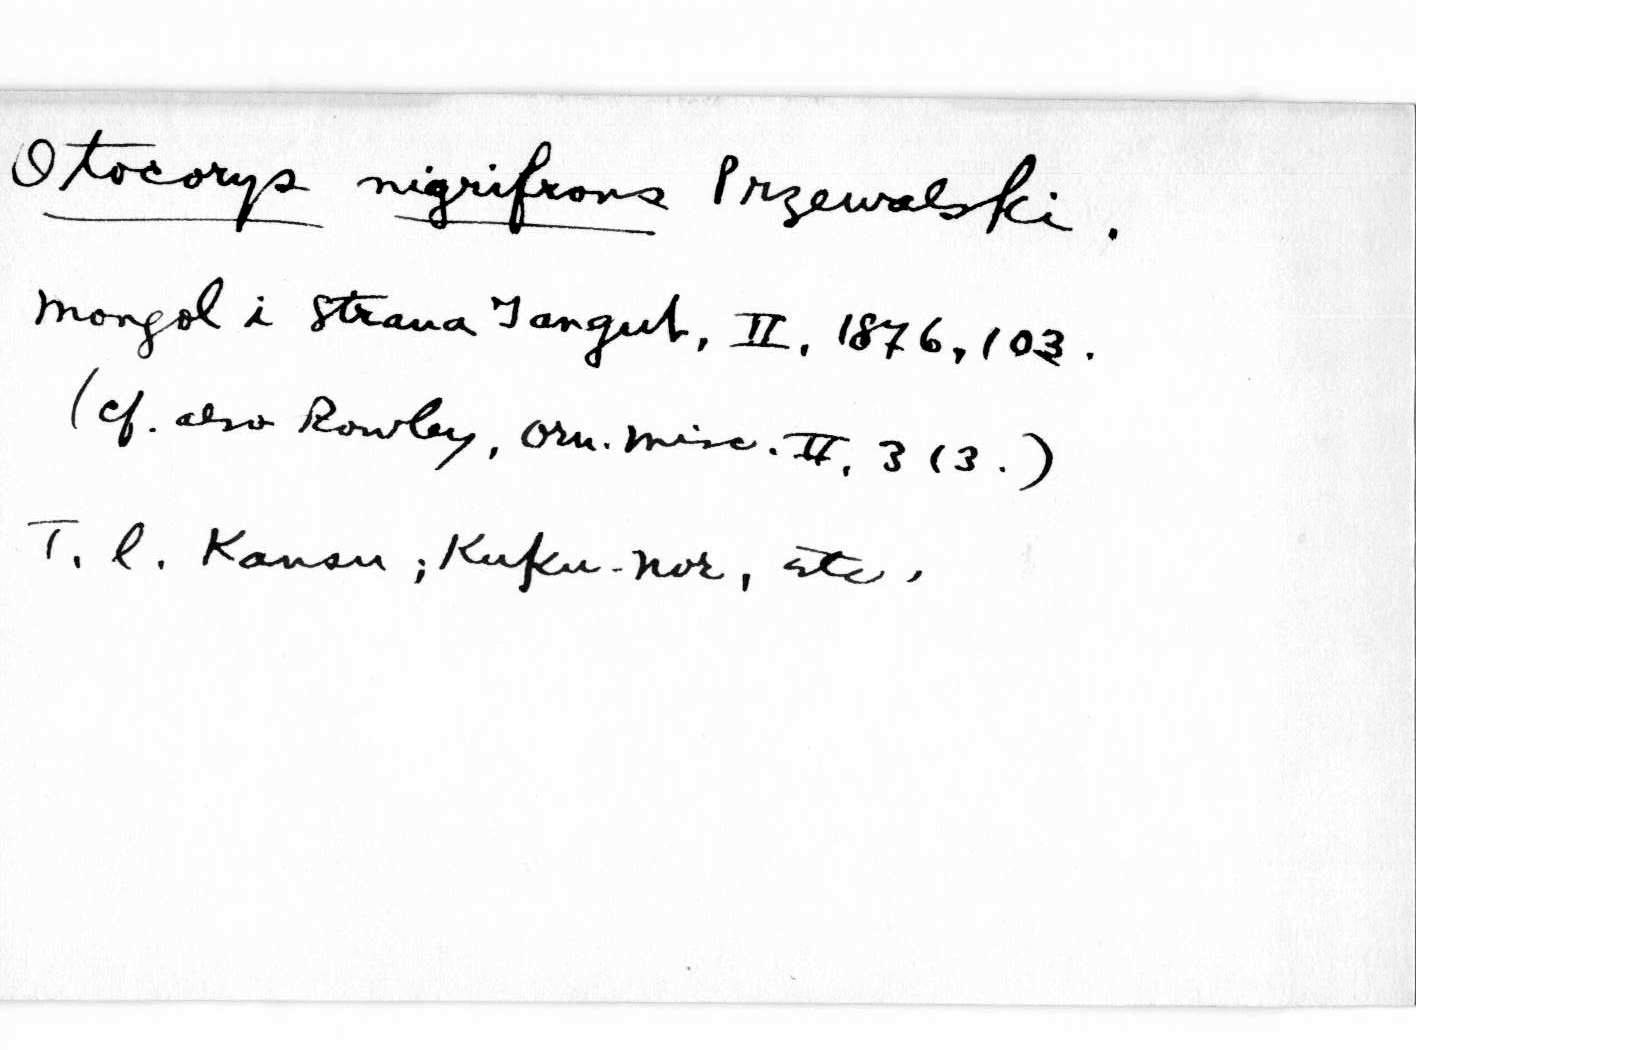 Otocorys nigrifrons Przewalski.
Mongol i Strana Tangut, II, 1876, 103.
(cf. also Rowley, Orn. Misc. II, 313.)
T. l. Kansu; Kuku-Nor, etc.